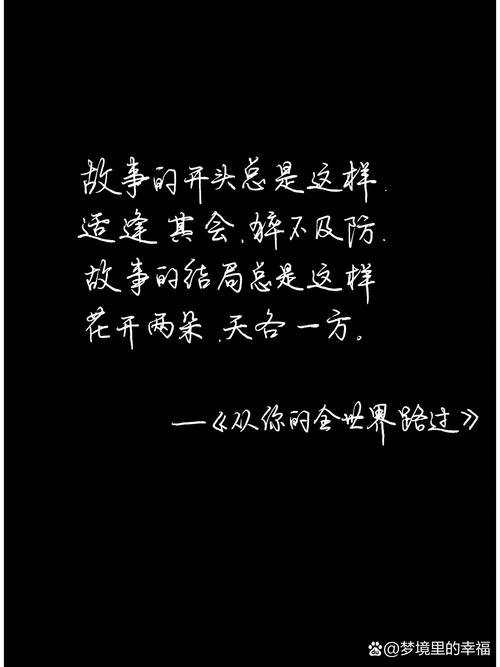 故事的开头总是这样.
适逢其会,猝不及防.
故事的结局总是这样
花开两朵,天各一方。
—《从你的全世界路过》
@梦境里的幸福